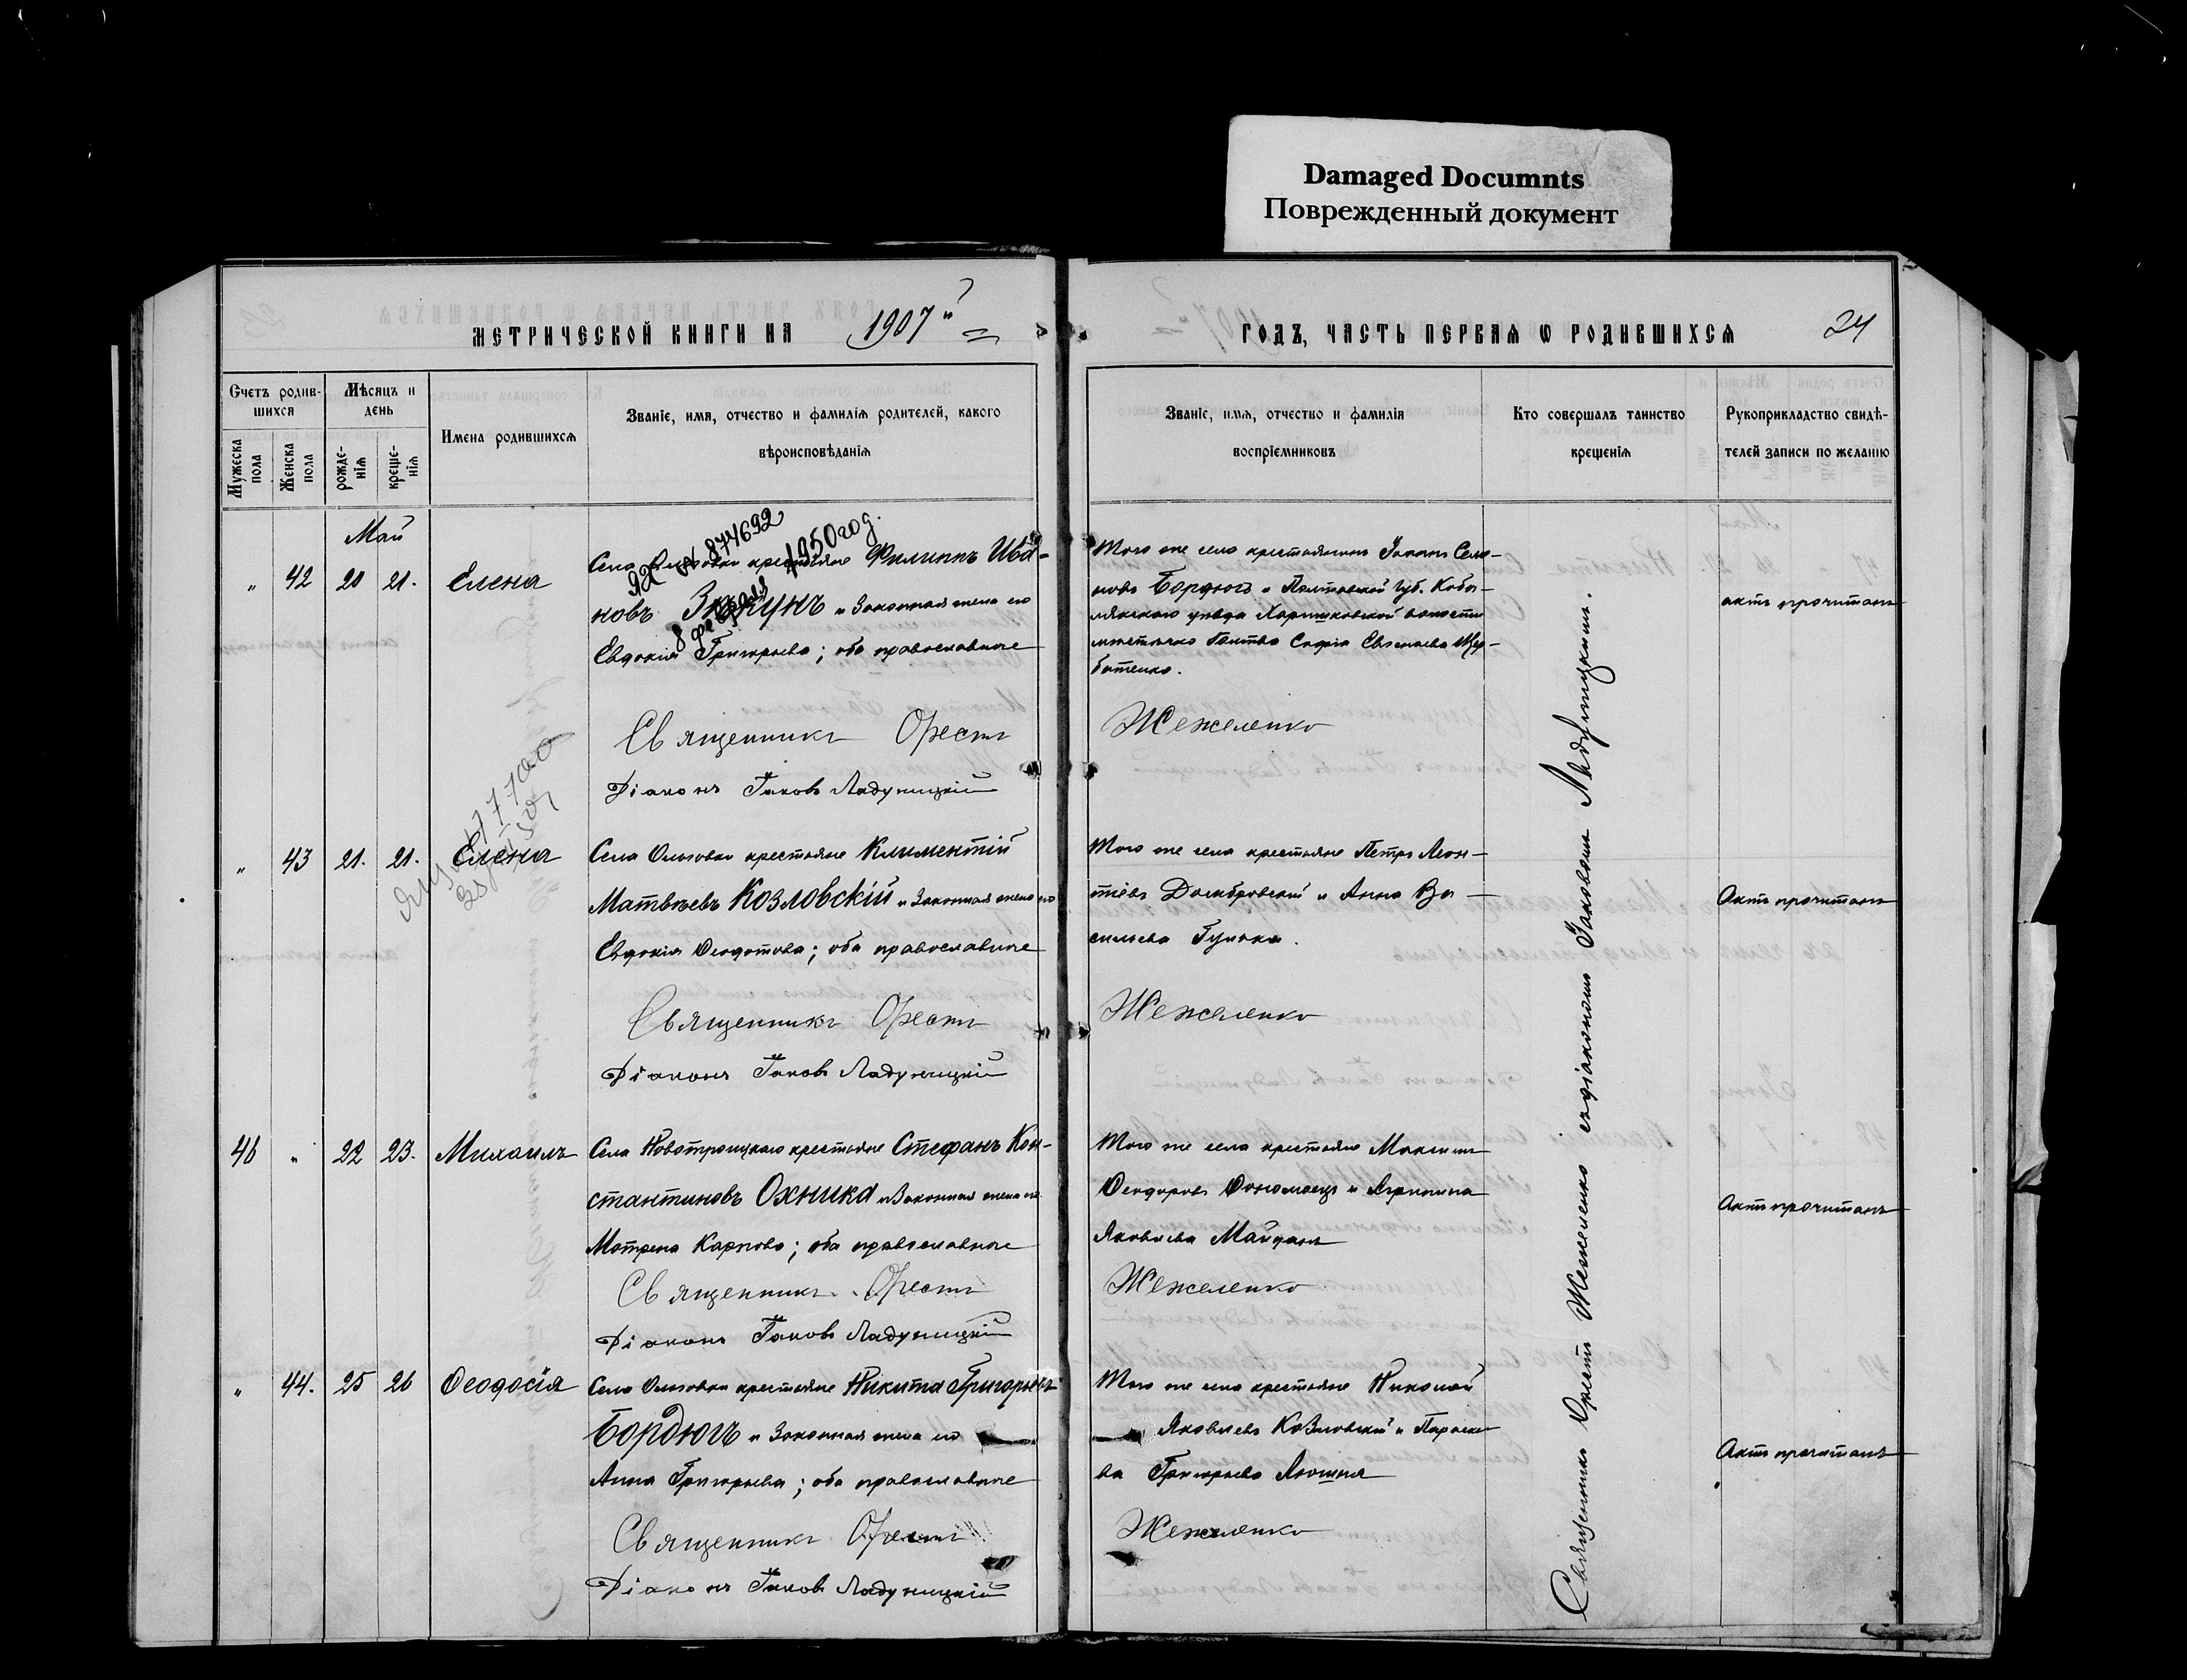 Damaged Documnts
Поврежденный документ
МЕТРИЧЕСКОЙ КНИГИ НА 1907
ГОДЪ, ЧАСТЬ ПЕРВАЯ Ѡ РОДИВШИХСЯ
24
Счетъ родив-
шихся
Мужеска
пола
Женска
пола
Мѣсяцъ и
день
рожде-
нія
креще-
нія
Имена родившихся
Званіе, имя, отчество и фамилія родителей, какого
вѣроисповѣданія
Званіе, имя, отчество и фамилія
воспріемниковъ
Кто совершалъ таинство
крещенія
Рукоприкладство свидѣ-
телей записи по желанію
Май
" 42 20 21. Елена
874692
8 февраля 1950 год.
Села крестьяне Филиппъ Ива-
новъ и законная жена его
Евдокія Григорьева; оба православные
Священникъ Орестъ
Діаконъ Іаковъ Ладуницкій
Того же села крестьянинъ Іоаннъ Семе-
новъ Бордюгъ и Полтавской губ. Кобы-
лякскаго уѣзда волости
Софія Щер-
батенко.
Жежеленко
актъ прочитанъ
" 43 21. 21. Елена
Села Ольговки крестьяне Климентій
Матвѣевъ Козловскій и законная жена его
Евдокія Ѳеодотова; оба православные
Священникъ Орестъ
Діаконъ Іаковъ Ладуницкій
Того же села крестьяне Петръ Леон-
тіевъ Домбровскій и Анна Ва-
сильева
Жежеленко
Актъ прочитанъ
46 " 22 23. Михаилъ
Села Новотроицкаго крестьяне Стефанъ Кон-
стантиновъ Охника и законная жена его
Мотрона Карпова; оба православные
Священникъ Орестъ
Діаконъ Іаковъ Ладуницкій
Того же села крестьяне Максимъ
Ѳеодоровъ и Агрипина
Яковлева Майдан
Жежеленко
Актъ прочитанъ
" 44. 25 26 Ѳеодосія
Села Ольговки крестьяне Никита Григорьевъ
Бордюгъ и законная жена его
Анна Григорьева; оба православные
Священникъ Орестъ
Діаконъ Іаковъ Ладуницкій
Того же села крестьяне Николай
Яковлевъ Козловскій и Параске-
ва Григорьева
Жежеленко
Актъ прочитанъ
Священникъ Орестъ Жежеленко содіакономъ Іаковомъ Ладуницкимъ.